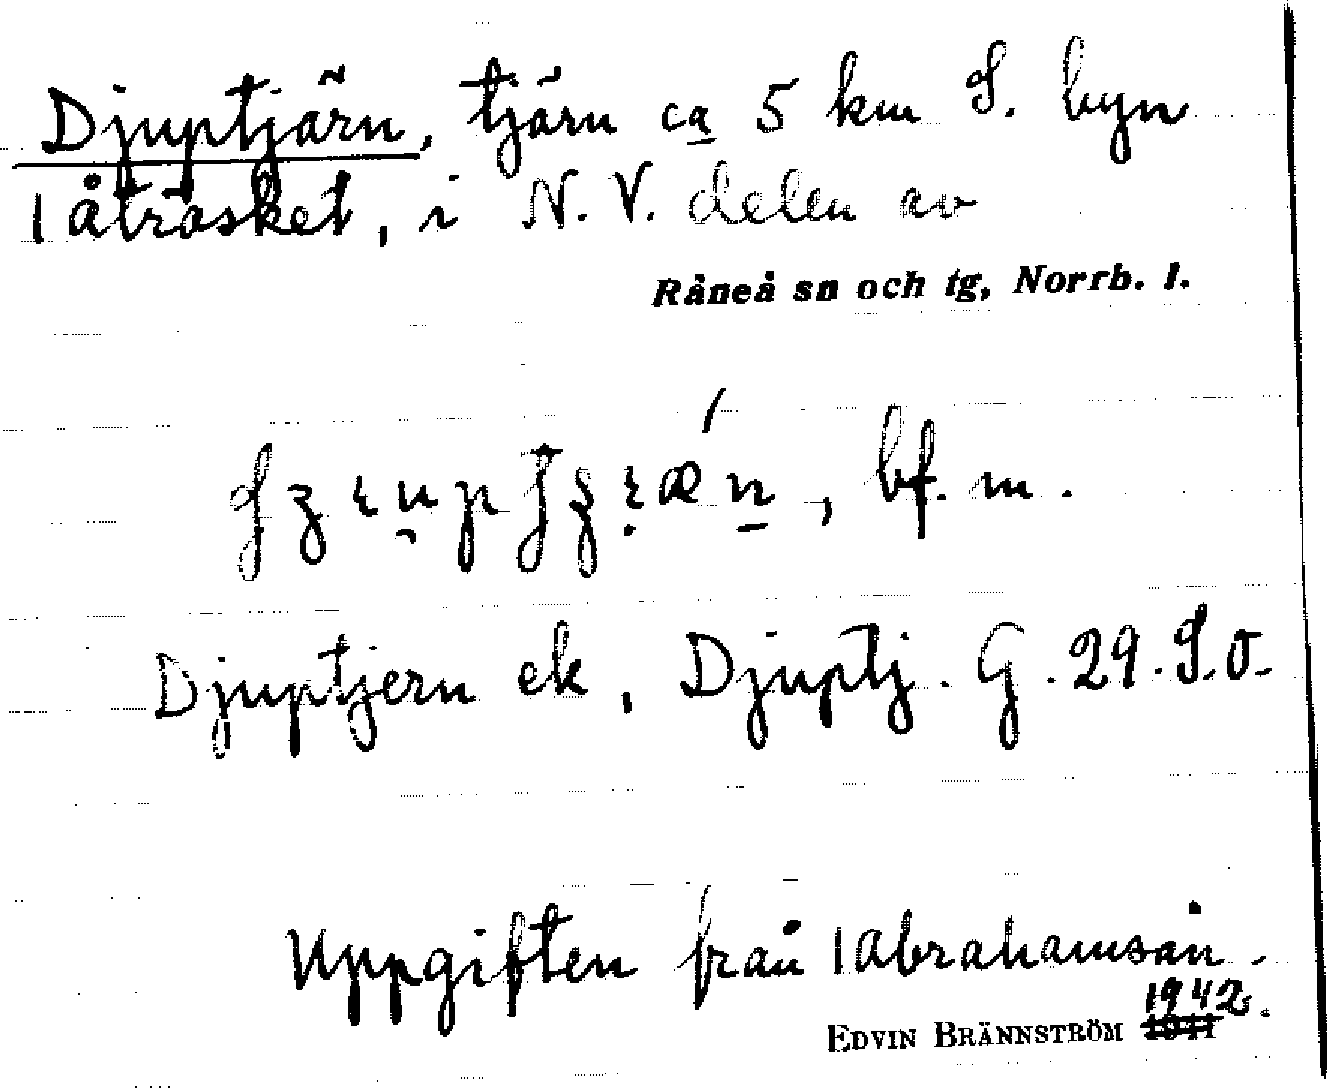 Djuptjärn, tjärn ca 5 km S. byn
Låträsket, i N. V. delen av
Råneå sn och tg, Norrb. l.
bf. m.
Djuptjern ek, Djuptj. G. 29. S.O.
Uppgiften från
EDVIN BRÄNNSTRÖM 1942.